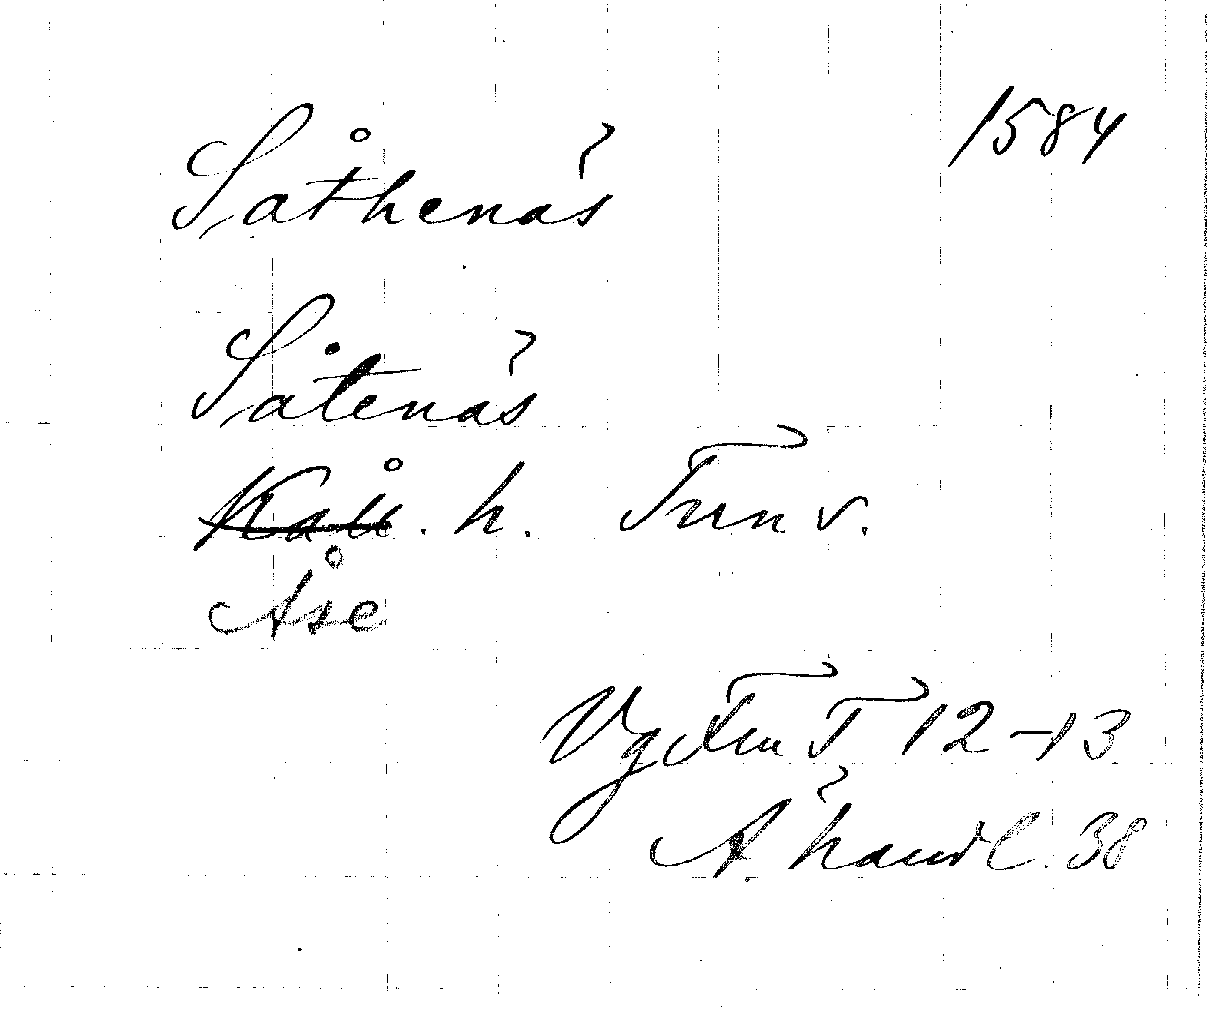 1584
Såthenäs
Såtenäs
Kåll. h. Tun v.
Åse
Vg Fru T 12-13
Ä. handl. 38